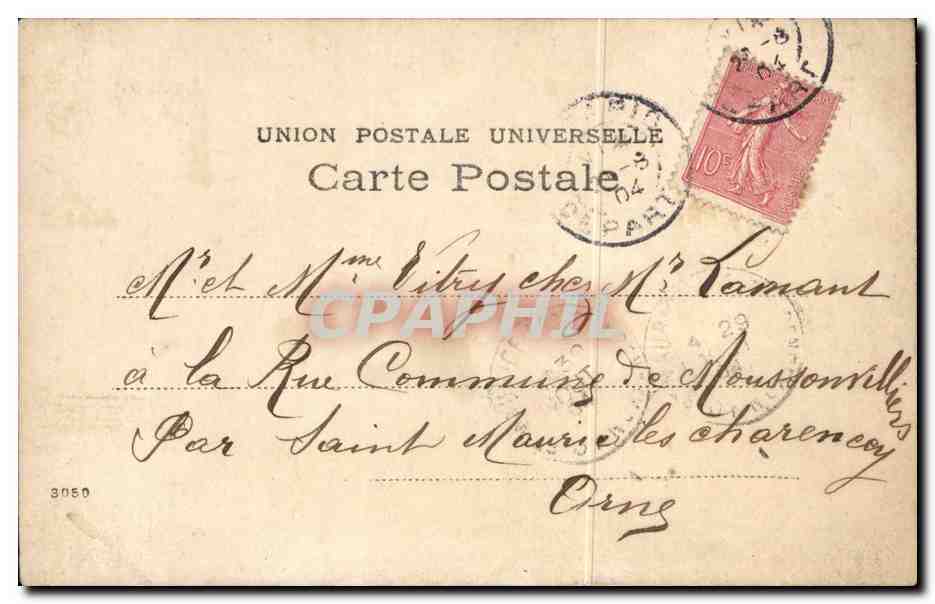 UNION POSTALE UNIVERSELLE
Carte Postale
10c
04
DEPART
Mr et Mme Vitry chez Mr Lamant
CPAPHIL
à la Rue Commune de Moussonvilliers
Par Saint Maurice les charencey
Orne
3050